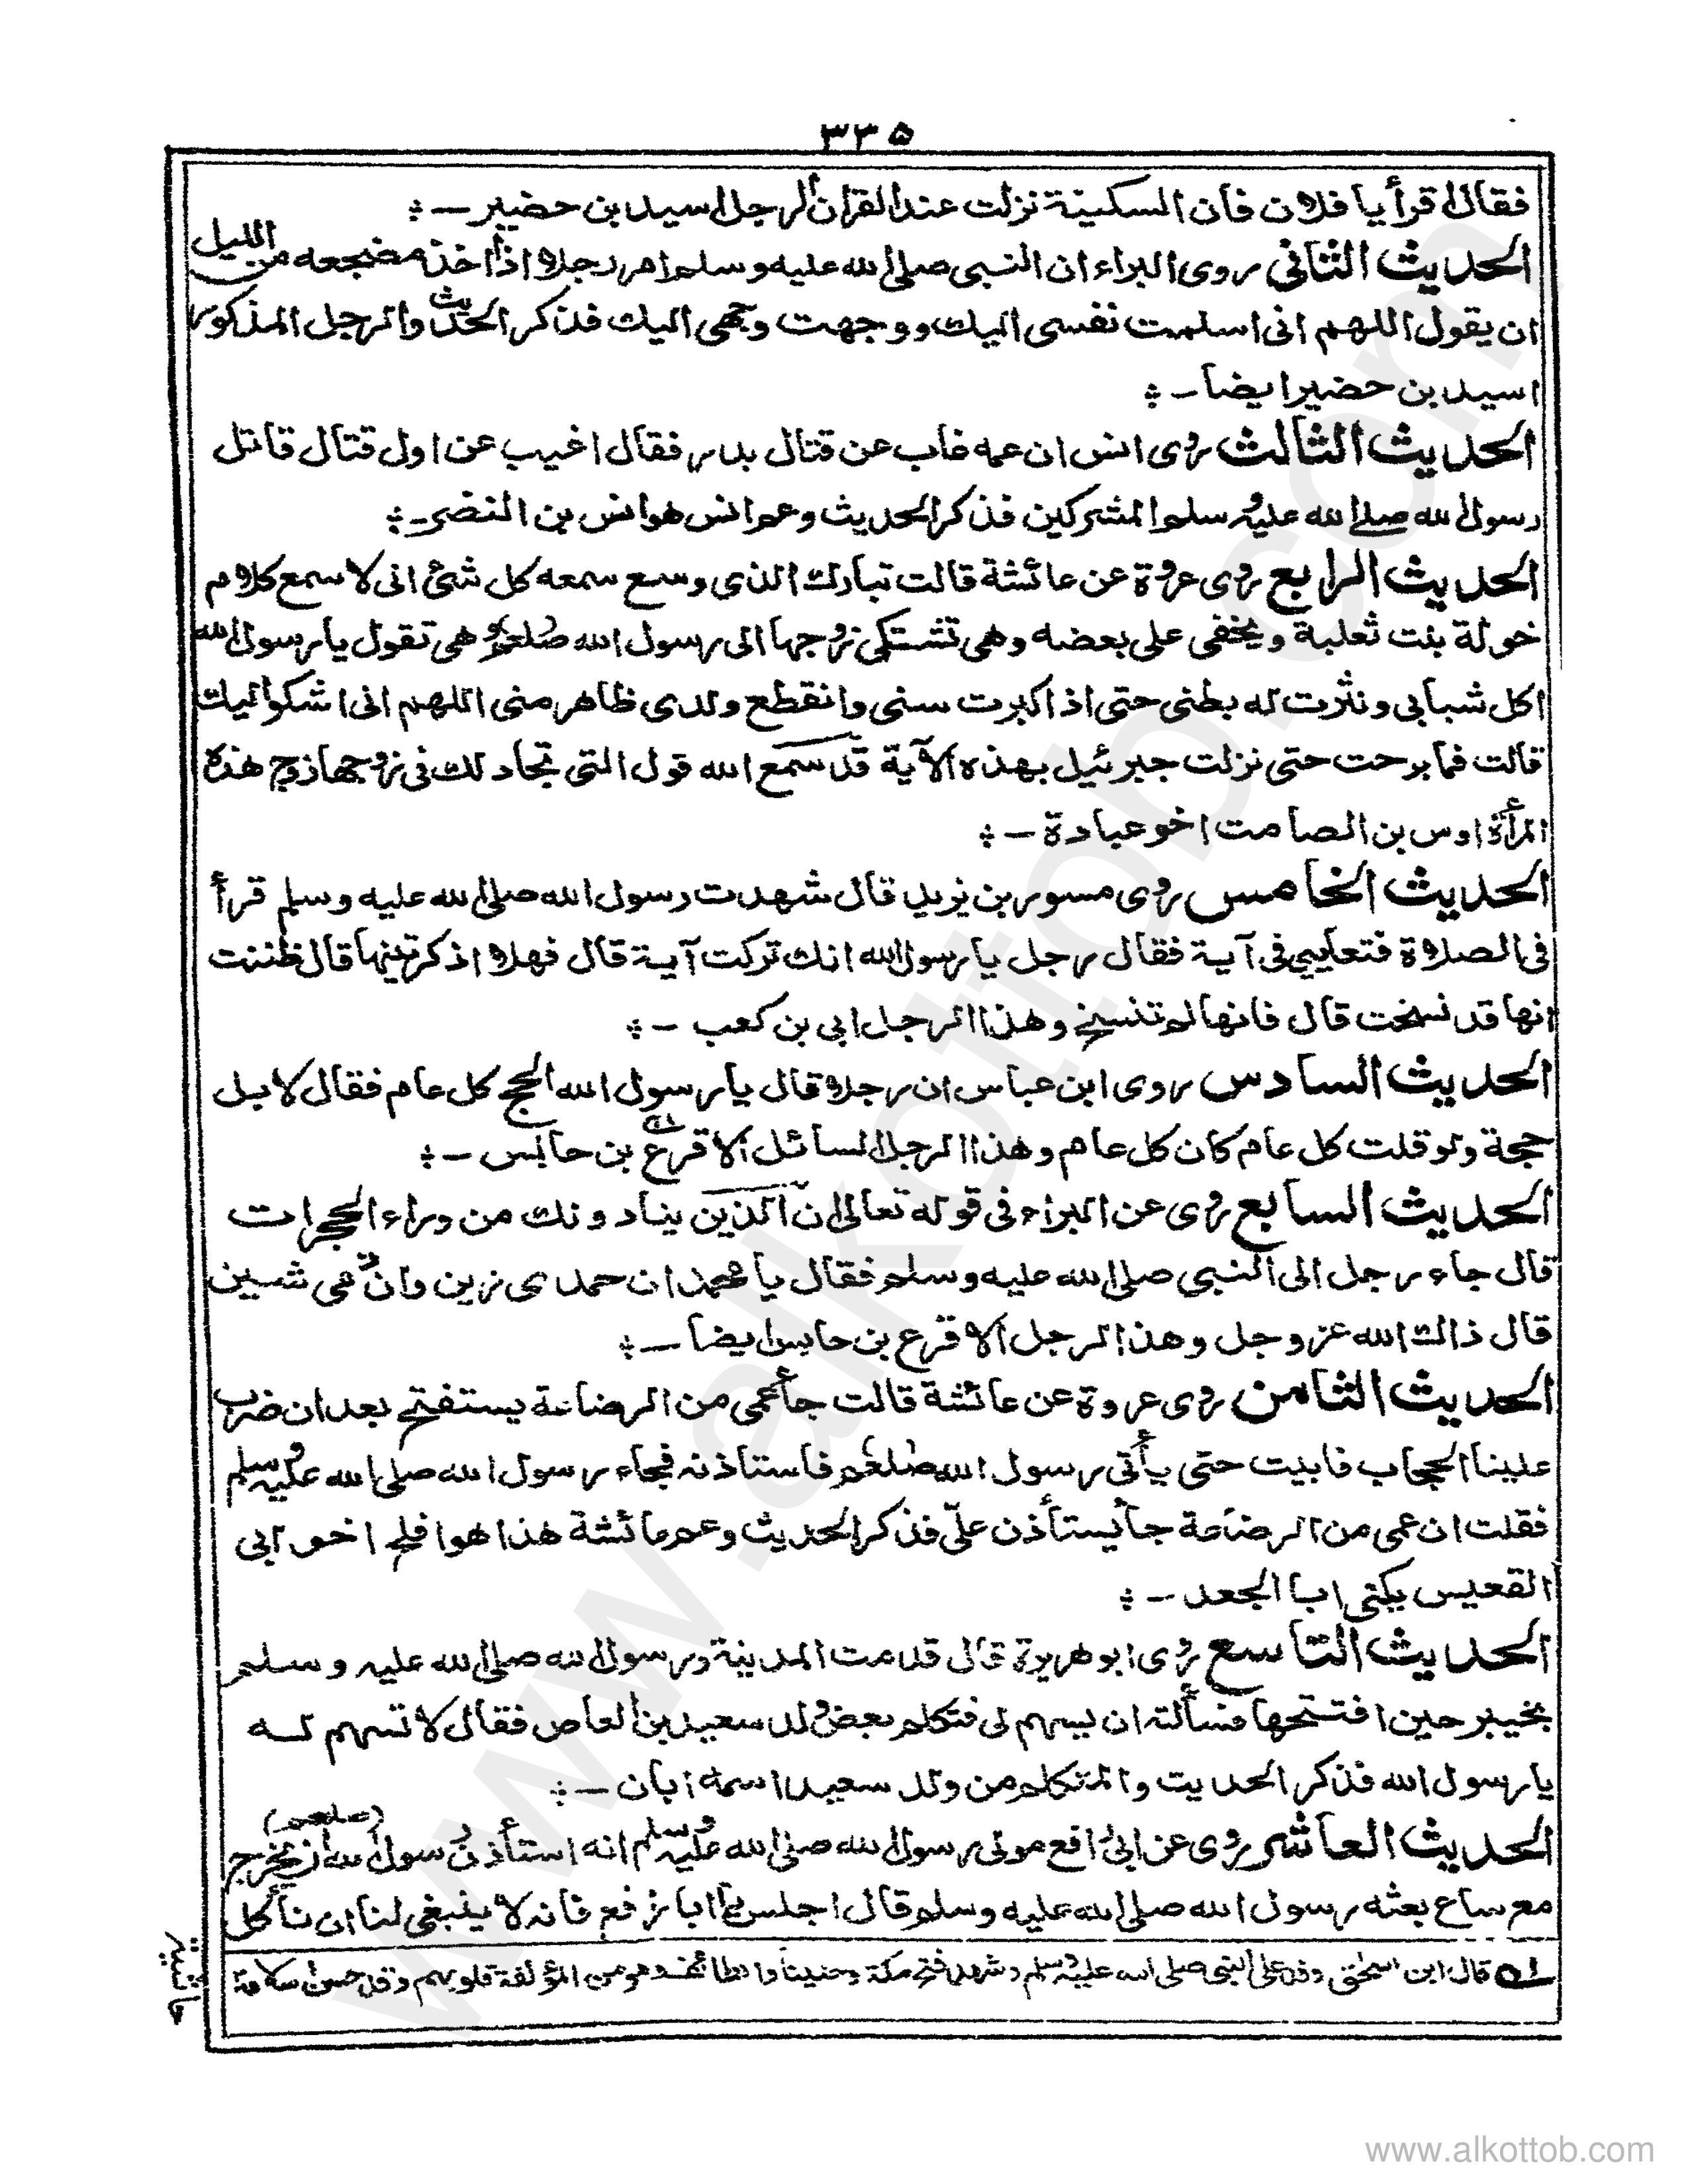 ٣٣٥
فقال اقرأ يا فلان فان السكينة نزلت عند القران الرجل اسيد بن حضير ــ
الحديث الثانى روى البراء ان النبى صلى الله عليه وسلم امر رجلا اذا اخذ مضجعه من الليل
ان يقول اللهم انى اسلمت نفسى اليك ووجهت وجهى اليك فذكر الحديث والرجل المذكور
اسيد بن حضير ايضا ــ
الحديث الثالث روى انس ان عمه غاب عن قتال بدر فقال اغيب عن اول قتال قاتل
رسول الله صلى الله عليه وسلم المشركين فذكر الحديث وعم انس هو انس بن النضر ــ
الحديث الرابع روى عروة عن عائشة قالت تبارك الذى وسع سمعه كل شئ انى لاسمع كلام
خولة بنت ثعلبة ويخفى على بعضه وهى تشتكى زوجها الى رسول الله صلعم وهى تقول يا رسول الله
اكل شبابى ونثرت له بطنى حتى اذا كبرت سنى وانقطع ولدى ظاهر منى اللهم انى اشكو اليك
قالت فما برحت حتى نزلت جبرئيل بهذه الآية قد سمع الله قول التى تجادلك فى زوجها زوج هذه
المرأة اوس بن الصامت اخو عبادة ــ
الحديث الخامس روى مسور بن يزيد قال شهدت رسول الله صلى الله عليه وسلم قرأ
فى الصلاة فتعايى فى آية فقال رجل يا رسول الله انك تركت آية قال فهلا اذكرتنيها قال ظننت
انها قد نسخت قال فانها لم تنسخ وهذا الرجل ابى بن كعب ــ
الحديث السادس روى ابن عباس ان رجلا قال يا رسول الله الحج كل عام فقال لا بل
حجة ولو قلت كل عام كان كل عام وهذا الرجل السائل الاقرع بن حابس ــ
الحديث السابع روى عن البراء فى قوله تعالى ان الذين ينادونك من وراء الحجرات
قال جاء رجل الى النبى صلى الله عليه وسلم فقال يا محمد ان حمدى زين وان ذمى شين
قال ذالك الله عز وجل وهذا الرجل الاقرع بن حابس ايضا ــ
الحديث الثامن روى عروة عن عائشة قالت جأ عمى من الرضاعة يستفتح بعد ان ضرب
علينا الحجاب فابيت حتى يأتى رسول الله صلعم فاستاذنه فجاء رسول الله صلى الله عليه وسلم
فقلت ان عمى من الرضاعة جأ يستأذن علىّ فذكر الحديث وعم عائشة هذا هو افلح اخو ابى
القعيس يكنى ابا الجعد ــ
الحديث التاسع روى ابو هريرة قال قدمت المدينة ورسول الله صلى الله عليه وسلم
بخيبر حين افتتحها فسألته ان يسهم لى فتكلم بعض ولد سعيد بن العاص فقال لا تسهم له
يا رسول الله فذكر الحديث والمتكلم من ولد سعيد اسمه ابان ــ
الحديث العاشر روى عن ابى رافع مولى رسول الله صلى الله عليه وسلم انه استأذن رسول الله (صلعم) ان يخرج
مع ساع بعثه رسول الله صلى الله عليه وسلم قال اجلس يا ابا رافع فانه لا ينبغى لنا ان نأكل
حاشية
قال ابن اسحق وفد على النبى صلى الله عليه وسلم وشهد فتح مكة وحنينا والطائف وهو من المؤلفة قلوبهم وقد حسن اسلامه
www.alkottob.com
www.alkottob.com